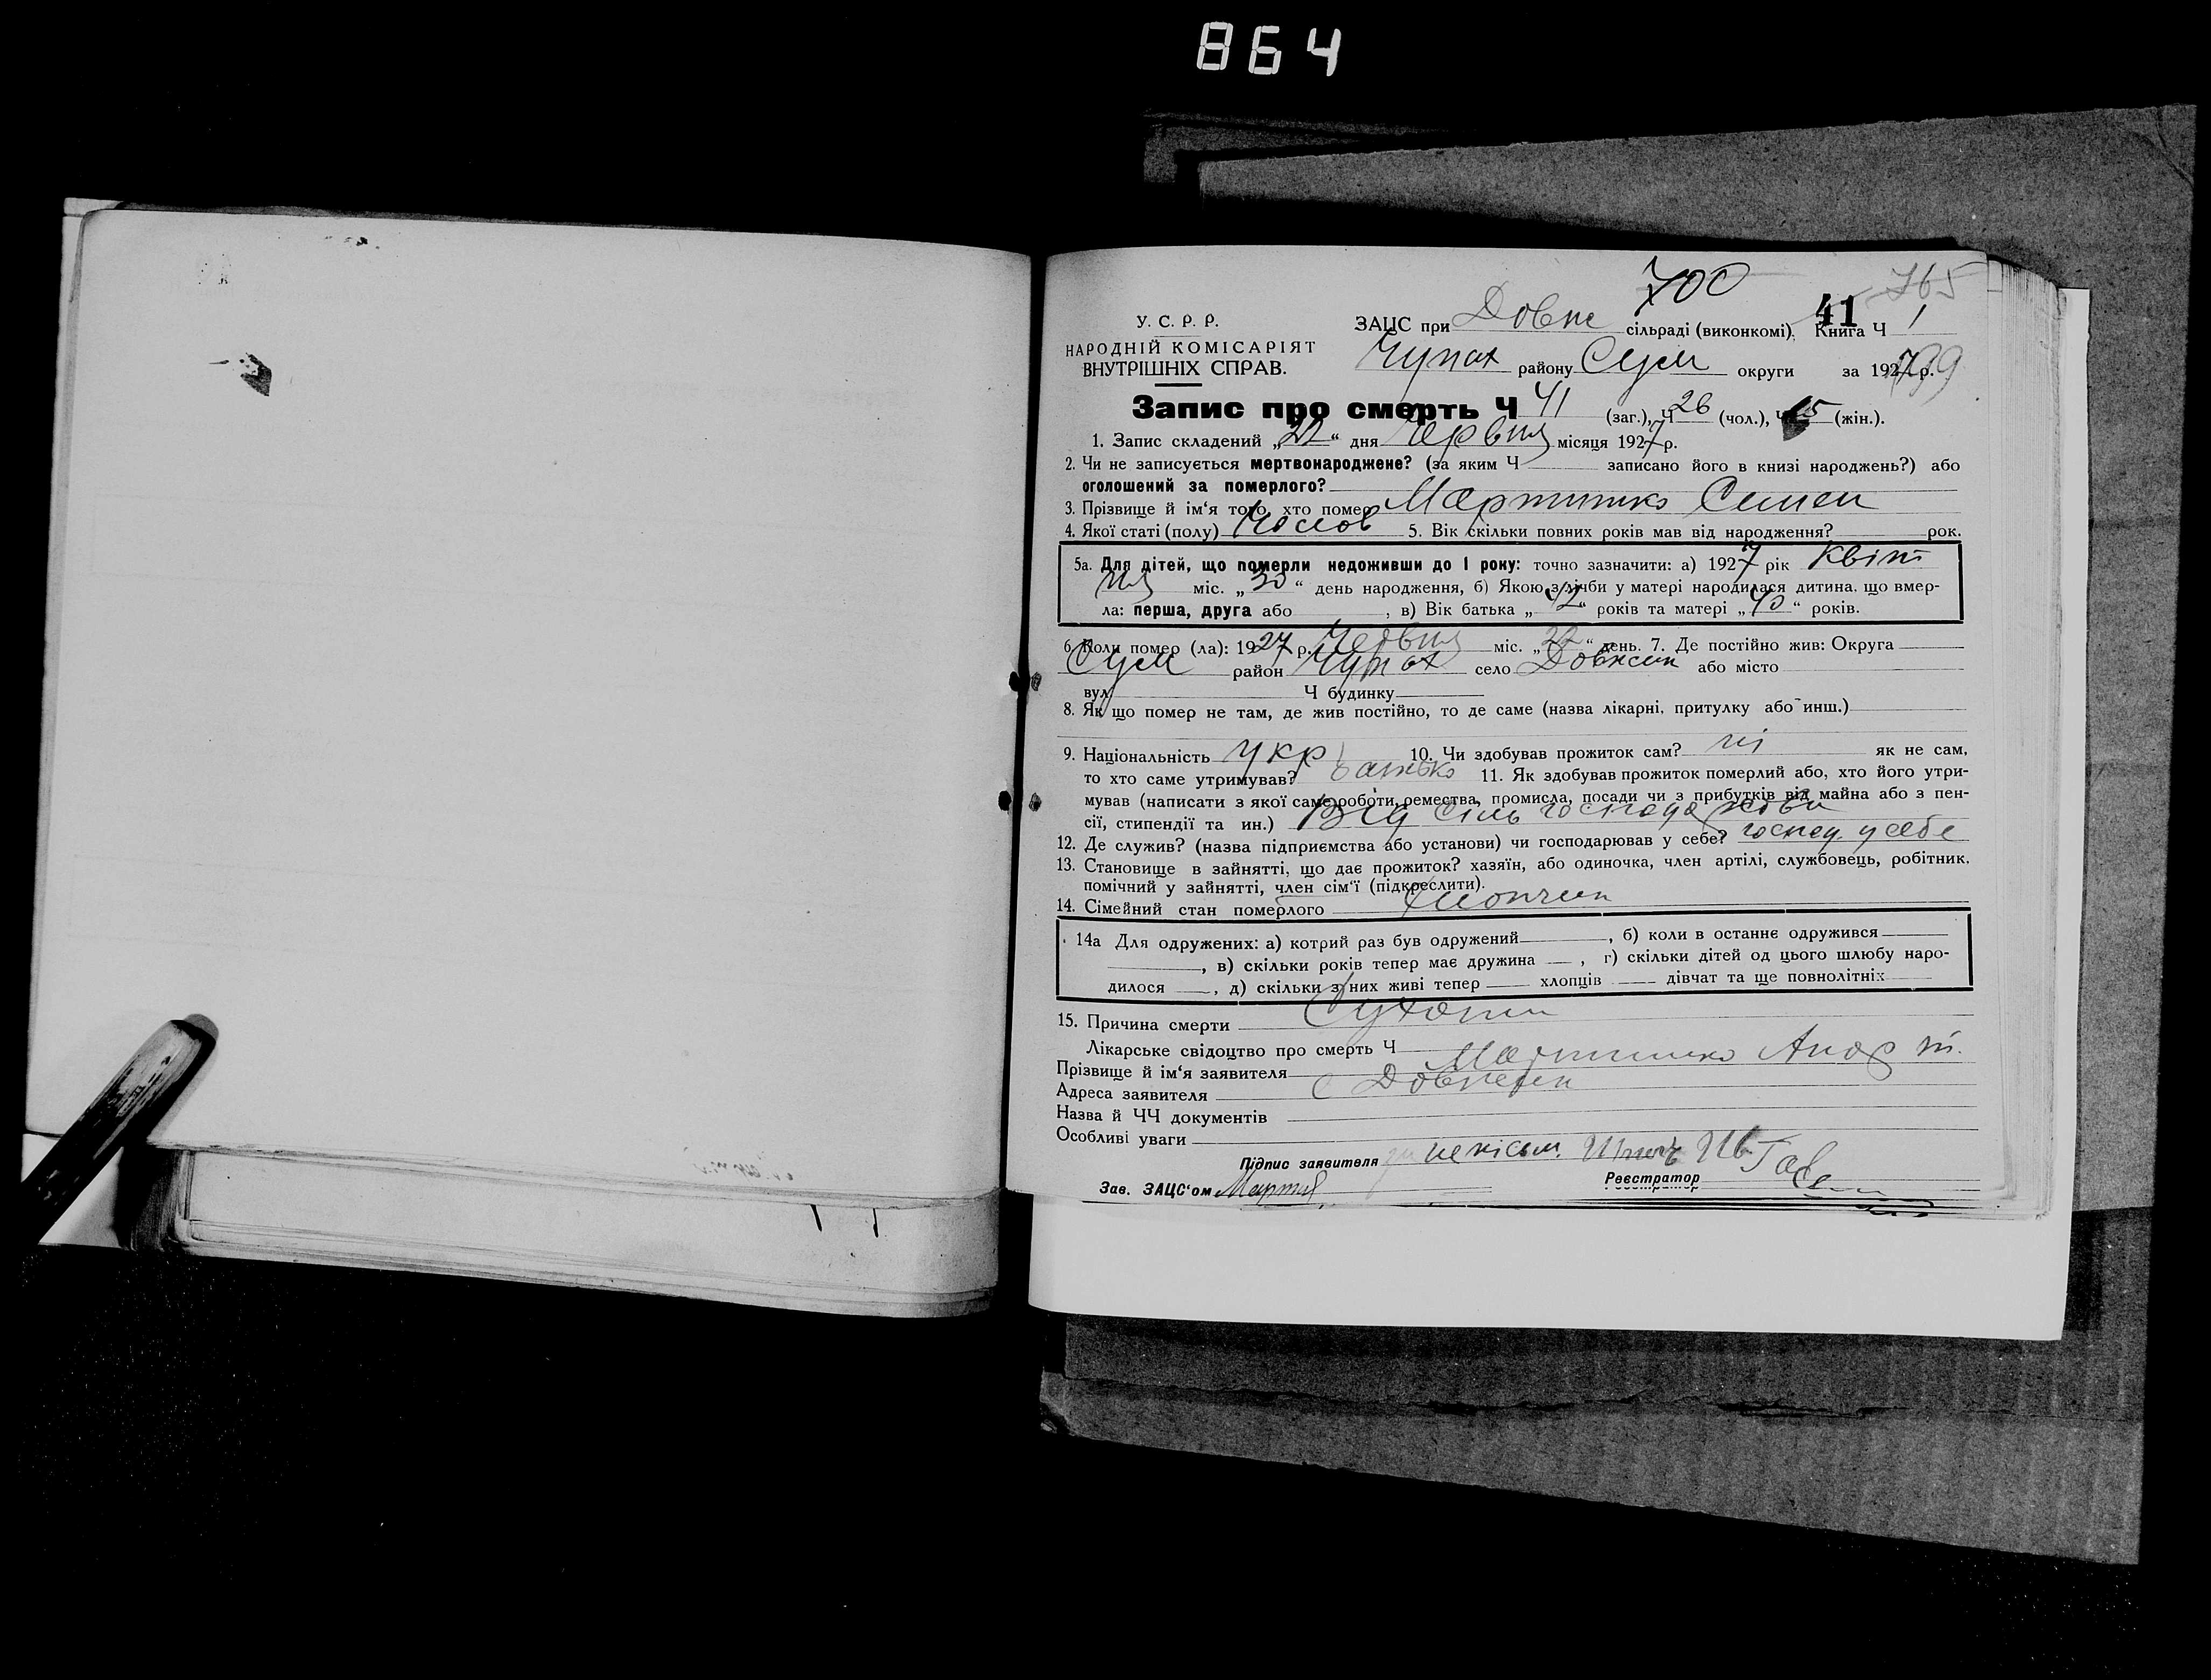 864
700
765
У. С. Р. Р.
ЗАЦС при Довже сільраді (виконкомі). Книга Ч 1
41
НАРОДНІЙ КОМІСАРІЯТ
ВНУТРІШНІХ СПРАВ.
Чупах району Сум округи за 1927 р.
799
Запис про смерть Ч 41 (заг.), Ч 26 (чол.), Ч 15 (жін.).
1. Запис складений „22“ дня Червня місяця 1927 р.
2. Чи не записується мертвонароджене? (за яким Ч записано його в книзі народжень?) або
оголошений за померлого?
3. Прізвище й ім‘я того, хто помер Мартишко Семен
4. Якої статі (полу) Чолов 5. Вік скільки повних років мав від народження? рок.
5а. Для дітей, що померли недоживши до 1 року: точно зазначити: а) 1927 рік Квіт
ня міс. „30“ день народження, б) Якою з лічби у матері народилася дитина, що вмер-
ла: перша, друга або , в) Вік батька „42“ років та матері „40“ років.
6. Коли помер (ла): 1927 р. Червня міс. „22“ день. 7. Де постійно жив: Округа
Сум район Чупах село Довжик або місто
вул. Ч будинку
8. Як що помер не там, де жив постійно, то де саме (назва лікарні, притулку або инш.)
9. Національність Укр 10. Чи здобував прожиток сам? ні як не сам,
то хто саме утримував? батько 11. Як здобував прожиток померлий або, хто його утри-
мував (написати з якої саме роботи, ремества, промисла, посади чи з прибутків від майна або з пен-
сії, стипендії та ин.) Від сіль господарства
12. Де служив? (назва підприємства або установи) чи господарював у себе? господ. у себе
13. Становище в зайнятті, що дає прожиток? хазяїн, або одиночка, член артілі, службовець, робітник,
помічний у зайнятті, член сім‘ї (підкреслити).
14. Сімейний стан померлого Хлопчик
14а Для одружених: а) котрий раз був одружений , б) коли в останнє одружився
, в) скільки років тепер має дружина , г) скільки дітей од цього шлюбу наро-
дилося , д) скільки з них живі тепер хлопців дівчат та ще повнолітніх
15. Причина смерти Сухоти
Лікарське свідоцтво про смерть Ч
Прізвище й ім‘я заявителя Мартишко
Адреса заявителя с Довжик
Назва й ЧЧ документів
Особливі уваги
Підпис заявителя
Зав. ЗАЦС‘ом
Реєстратор